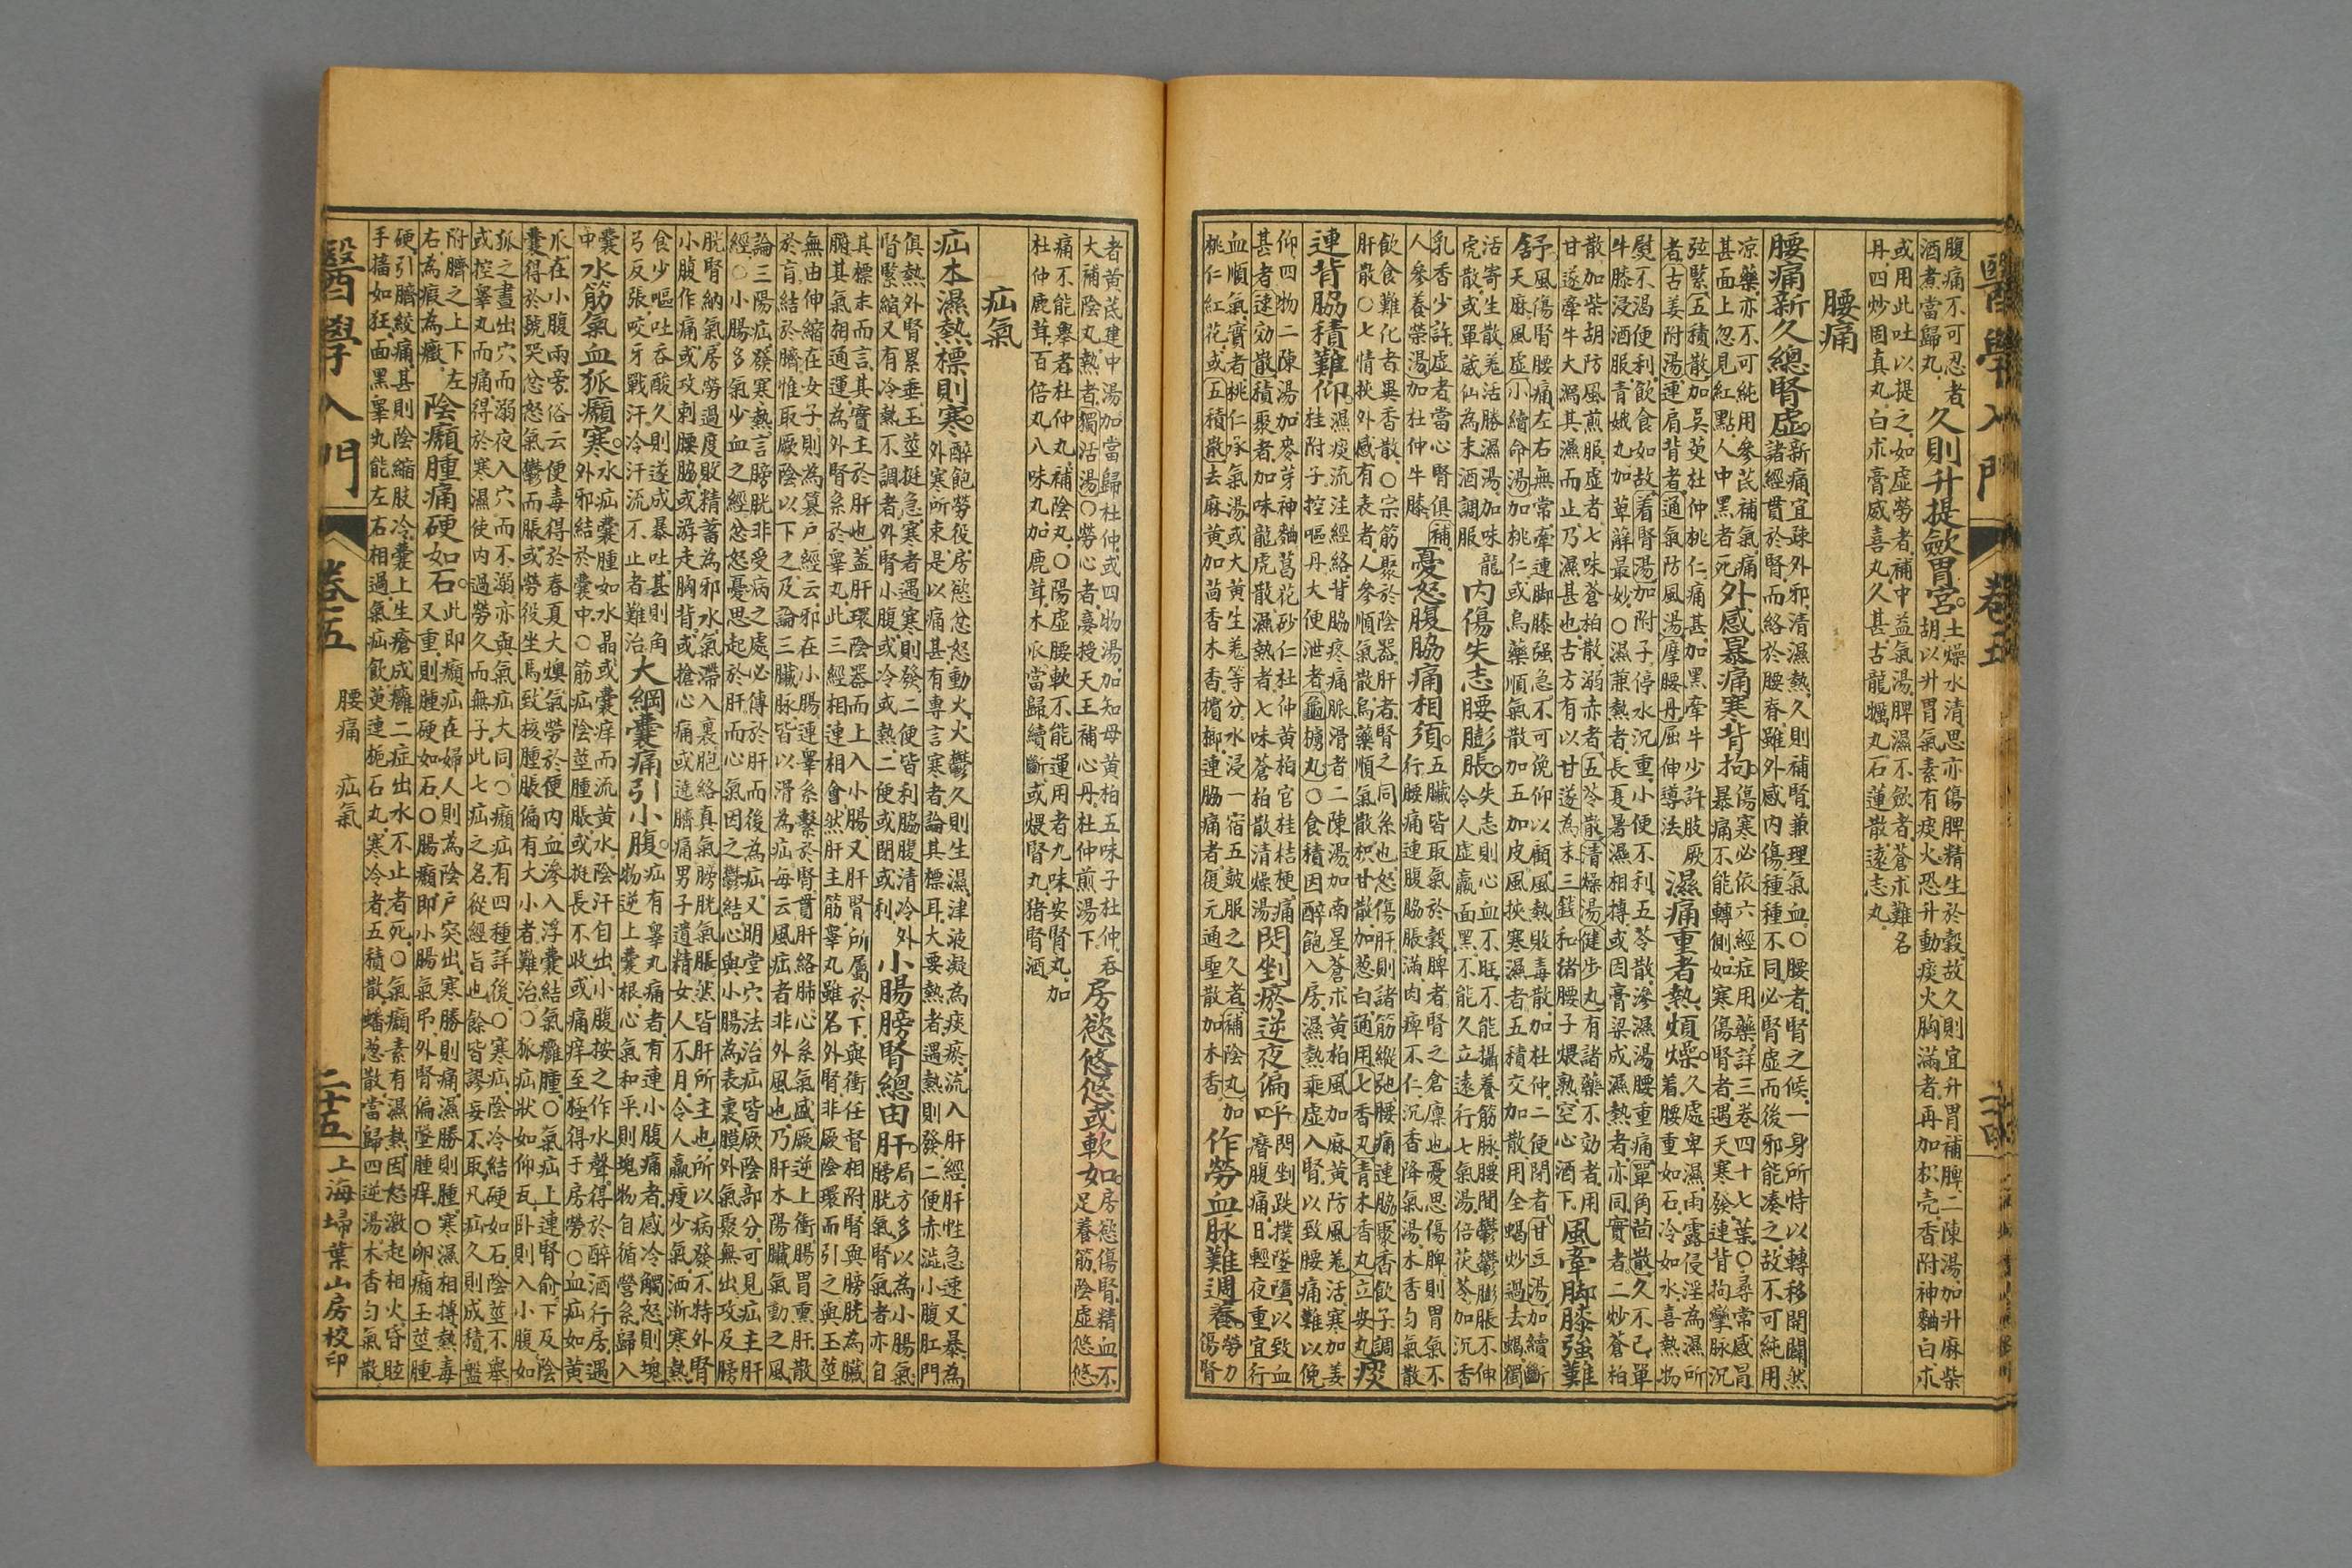 醫學入門 卷五
腹痛不可忍者
酒煮當歸丸
久則升提歛胃宮
土燥水清思亦傷脾精生於穀故久則宜升胃補脾二陳湯加升麻柴
胡以升胃氣素有痰火恐升動痰火胸滿者再加枳壳香附神麯白朮
或用此吐以提之如虛勞者補中益氣湯脾濕不歛者蒼朮難名
丹四炒固真丸白朮膏威喜丸久甚古龍蠣丸石蓮散遠志丸
腰痛
腰痛新久總腎虛
新痛宜疎外邪清濕熱久則補腎兼理氣血○腰者腎之候一身所恃以轉移開闔然
諸經貫於腎而絡於腰脊雖外感內傷種種不同必腎虛而後邪能凑之故不可純用
凉藥亦不可純用參芪補氣痛
甚面上忽見紅點人中黑者死
外感暴痛寒背拘
傷寒必依六經症用藥詳三卷四十七葉○尋常感冒
暴痛不能轉側如寒傷腎者遇天寒發連背拘攣脉沉
弦緊五積散加吳茰杜仲桃仁痛甚加黑牽牛少許肢厥
者古姜附湯連肩背者通氣防風湯摩腰丹屈伸導法
濕痛重者熱煩燥
久處卑濕雨露侵淫為濕所
着腰重如石冷如水喜熱物
熨不渴便利飲食如故着腎湯加附子停水沉重小便不利五苓散滲濕湯腰重痛單角茴散久不已單
牛膝浸酒服青娥丸加草薢最妙○濕兼熱者長夏暑濕相搏或因膏梁成濕熱者亦同實者二炒蒼柏
散加柴胡防風煎服虛者七味蒼柏散溺赤者五苓散清燥湯健步丸有諸藥不効者用
甘遂牽牛大瀉其濕而止乃濕甚也古方有以甘遂為末三錢和猪腰子煨熟空心酒下
風牽脚膝強難
舒
風傷腎腰痛左右無常牽連脚膝强急不可俛仰以顧風熱敗毒散加杜仲二便閉者甘豆湯加續斷
天麻風虛小續命湯加桃仁或烏藥順氣散加五加皮風挾寒濕者五積交加散用全蝎炒過去蝎獨
活寄生散羗活勝濕湯加味龍
虎散或單葳仙為末酒調服
內傷失志腰膨脹
失志則心血不旺不能攝養筋脉腰間鬱鬱膨脹不伸
令人虛羸面黑不能久立遠行七氣湯倍茯苓加沉香
乳香少許虛者當心腎俱補
人參養榮湯加杜仲牛膝
憂怒腹脇痛相須
五臟皆取氣於穀脾者腎之倉廩也憂思傷脾則胃氣不
行腰痛連腹脇脹滿肉痺不仁沉香降氣湯木香勻氣散
飲食難化者異香散○宗筋聚於陰器肝者腎之同系也怒傷肝則諸筋縱弛腰痛連脇聚香飲子調
肝散○七情挾外感有表者人參順氣散烏藥順氣散枳甘散加葱白通用七香丸青木香丸立安丸
痰
連背脇積難仰
濕痰流注經絡背脇疼痛脈滑者二陳湯加南星蒼朮黃柏風加麻黃防風羗活寒加姜
桂附子控嘔丹大便泄者龜摢丸○食積因醉飽入房濕熱乘虛入腎以致腰痛難以俛
仰四物二陳湯加麥芽神麯菖花砂仁杜仲黃柏官桂桔梗痛
甚者速効散積聚者加味龍虎散濕熱者七味蒼柏散清燥湯
閃剉瘀逆夜偏呼
閃剉跌撲墜墮以致血
瘀腹痛日輕夜重宜行
血順氣實者桃仁承氣湯或大黃生羗等分水浸一宿五皷服之久者補陰丸加
桃仁紅花或五積散去麻黃加茴香木香檳榔連脇痛者復元通聖散加木香
作勞血脉難調養
勞力
傷腎
者黃芪建中湯加當歸杜仲或四物湯加知母黃柏五味子杜仲吞
大補陰丸熱者獨活湯○勞心者妾授天王補心丹杜仲煎湯下
房慾悠悠或軟如
房慾傷腎精血不
足養筋陰虛悠悠
痛不能舉者杜仲丸補陰丸○陽虛腰軟不能運用者九味安腎丸加
杜仲鹿茸百倍丸八味丸加鹿茸木爪當歸續斷或煨腎丸猪腎酒
疝氣
疝本濕熱標則寒
醉飽勞役房慾忿怒動火火鬱久則生濕津液凝為痰瘀流入肝經肝性急速又暴為
外寒所束是以痛甚有專言寒者論其標耳大要熱者遇熱則發二便赤澁小腹肛門
俱熱外腎累垂玉莖挺急寒者遇寒則發二便皆利脇腹清冷外
腎緊縮又有冷熱不調者外腎小腹或冷或熱二便或閉或利
小腸膀腎總由肝
局方多以為小腸氣
膀胱氣腎氣者亦自
其標末而言其實主於肝也盖肝環陰器而上入小腸又肝腎所屬於下與衝任督相附腎與膀胱為臟
腑其氣相通運為外腎系於睾丸此三經相連相會然肝主筋睾丸雖名外腎非厥陰環而引之與玉莖
無由伸縮在女子則為篡戶經云邪在小腸連睾系繫於腎貫肝絡肺心系氣盛厥逆上衝腸胃熏肝散
於肓結於臍惟取厥陰以下之及論三臟脉皆以滑為疝每云風疝者非外風也乃肝木陽臟氣動之風
論三陽疝發寒熱言膀胱非受病之處必傳於肝而後為疝又明堂穴法治疝皆厥陰部分可見疝主肝
經○小腸多氣少血之經忿怒憂思起於肝而心氣因之鬱結心與小腸為表裏膜外氣聚無出攻及膀
胱腎納氣房勞過度敗精蓄為邪水氣滯入裏胞絡真氣膀胱氣脹然皆肝所主也所以病發不特外腎
小腹作痛或攻刺腰脇或游走胸背或搶心痛或遶臍痛男子遺精女人不月令人羸瘦少氣洒淅寒熱
食少嘔吐吞酸久則遂成暴吐甚則角
弓反張咬牙戰汗冷汗流不止者難治
大綱囊痛引小腹
疝有睾丸痛者有連小腹痛者感冷觸怒則塊
物逆上囊根心氣和平則塊物自循營系歸入
囊
中
水筋氣血狐癲寒
水疝囊腫如水晶或囊痒而流黃水陰汗自出小腹按之作水聲得於醉酒行房遇
外邪結於囊中○筋疝陰莖腫脹或挺長不收或痛痒至極得于房勞○血疝如黃
爪在小腹兩旁俗云便毒得於春夏大燠氣勞於便內血滲入浮囊結氣癰腫○氣疝上連腎俞下及陰
囊得於號哭忿怒氣鬱而脹或勞役坐馬致核腫脹偏有大小者難治○狐疝狀如仰瓦卧則入小腹如
狐之晝出穴而溺夜入穴而不溺亦與氣疝大同○癲疝有四種詳後○寒疝陰冷結硬如石陰莖不舉
或控睾丸而痛得於寒濕使內過勞久而無子此七疝之名從經旨也餘皆謬妄不取凡疝久則成積盤
附臍之上下左
右為瘕為癥
陰癲腫痛硬如石
此即癲疝在婦人則為陰戶突出寒勝則痛濕勝則腫寒濕相搏熱毒
又重則腫硬如石○腸癲即小腸氣吊外腎偏墜腫痒○卵癲玉莖腫
硬引臍絞痛甚則陰縮肢冷囊上生瘡成癰二症出水不止者死○氣癲素有濕熱因怒激起相火昏眩
手搐如狂面黑睾丸能左右相過氣疝飲茰連梔石丸寒冷者五積散蟠葱散當歸四逆湯木香勻氣散
醫學入門 卷五 腰痛 疝氣 二十五 上海埽葉山房校印